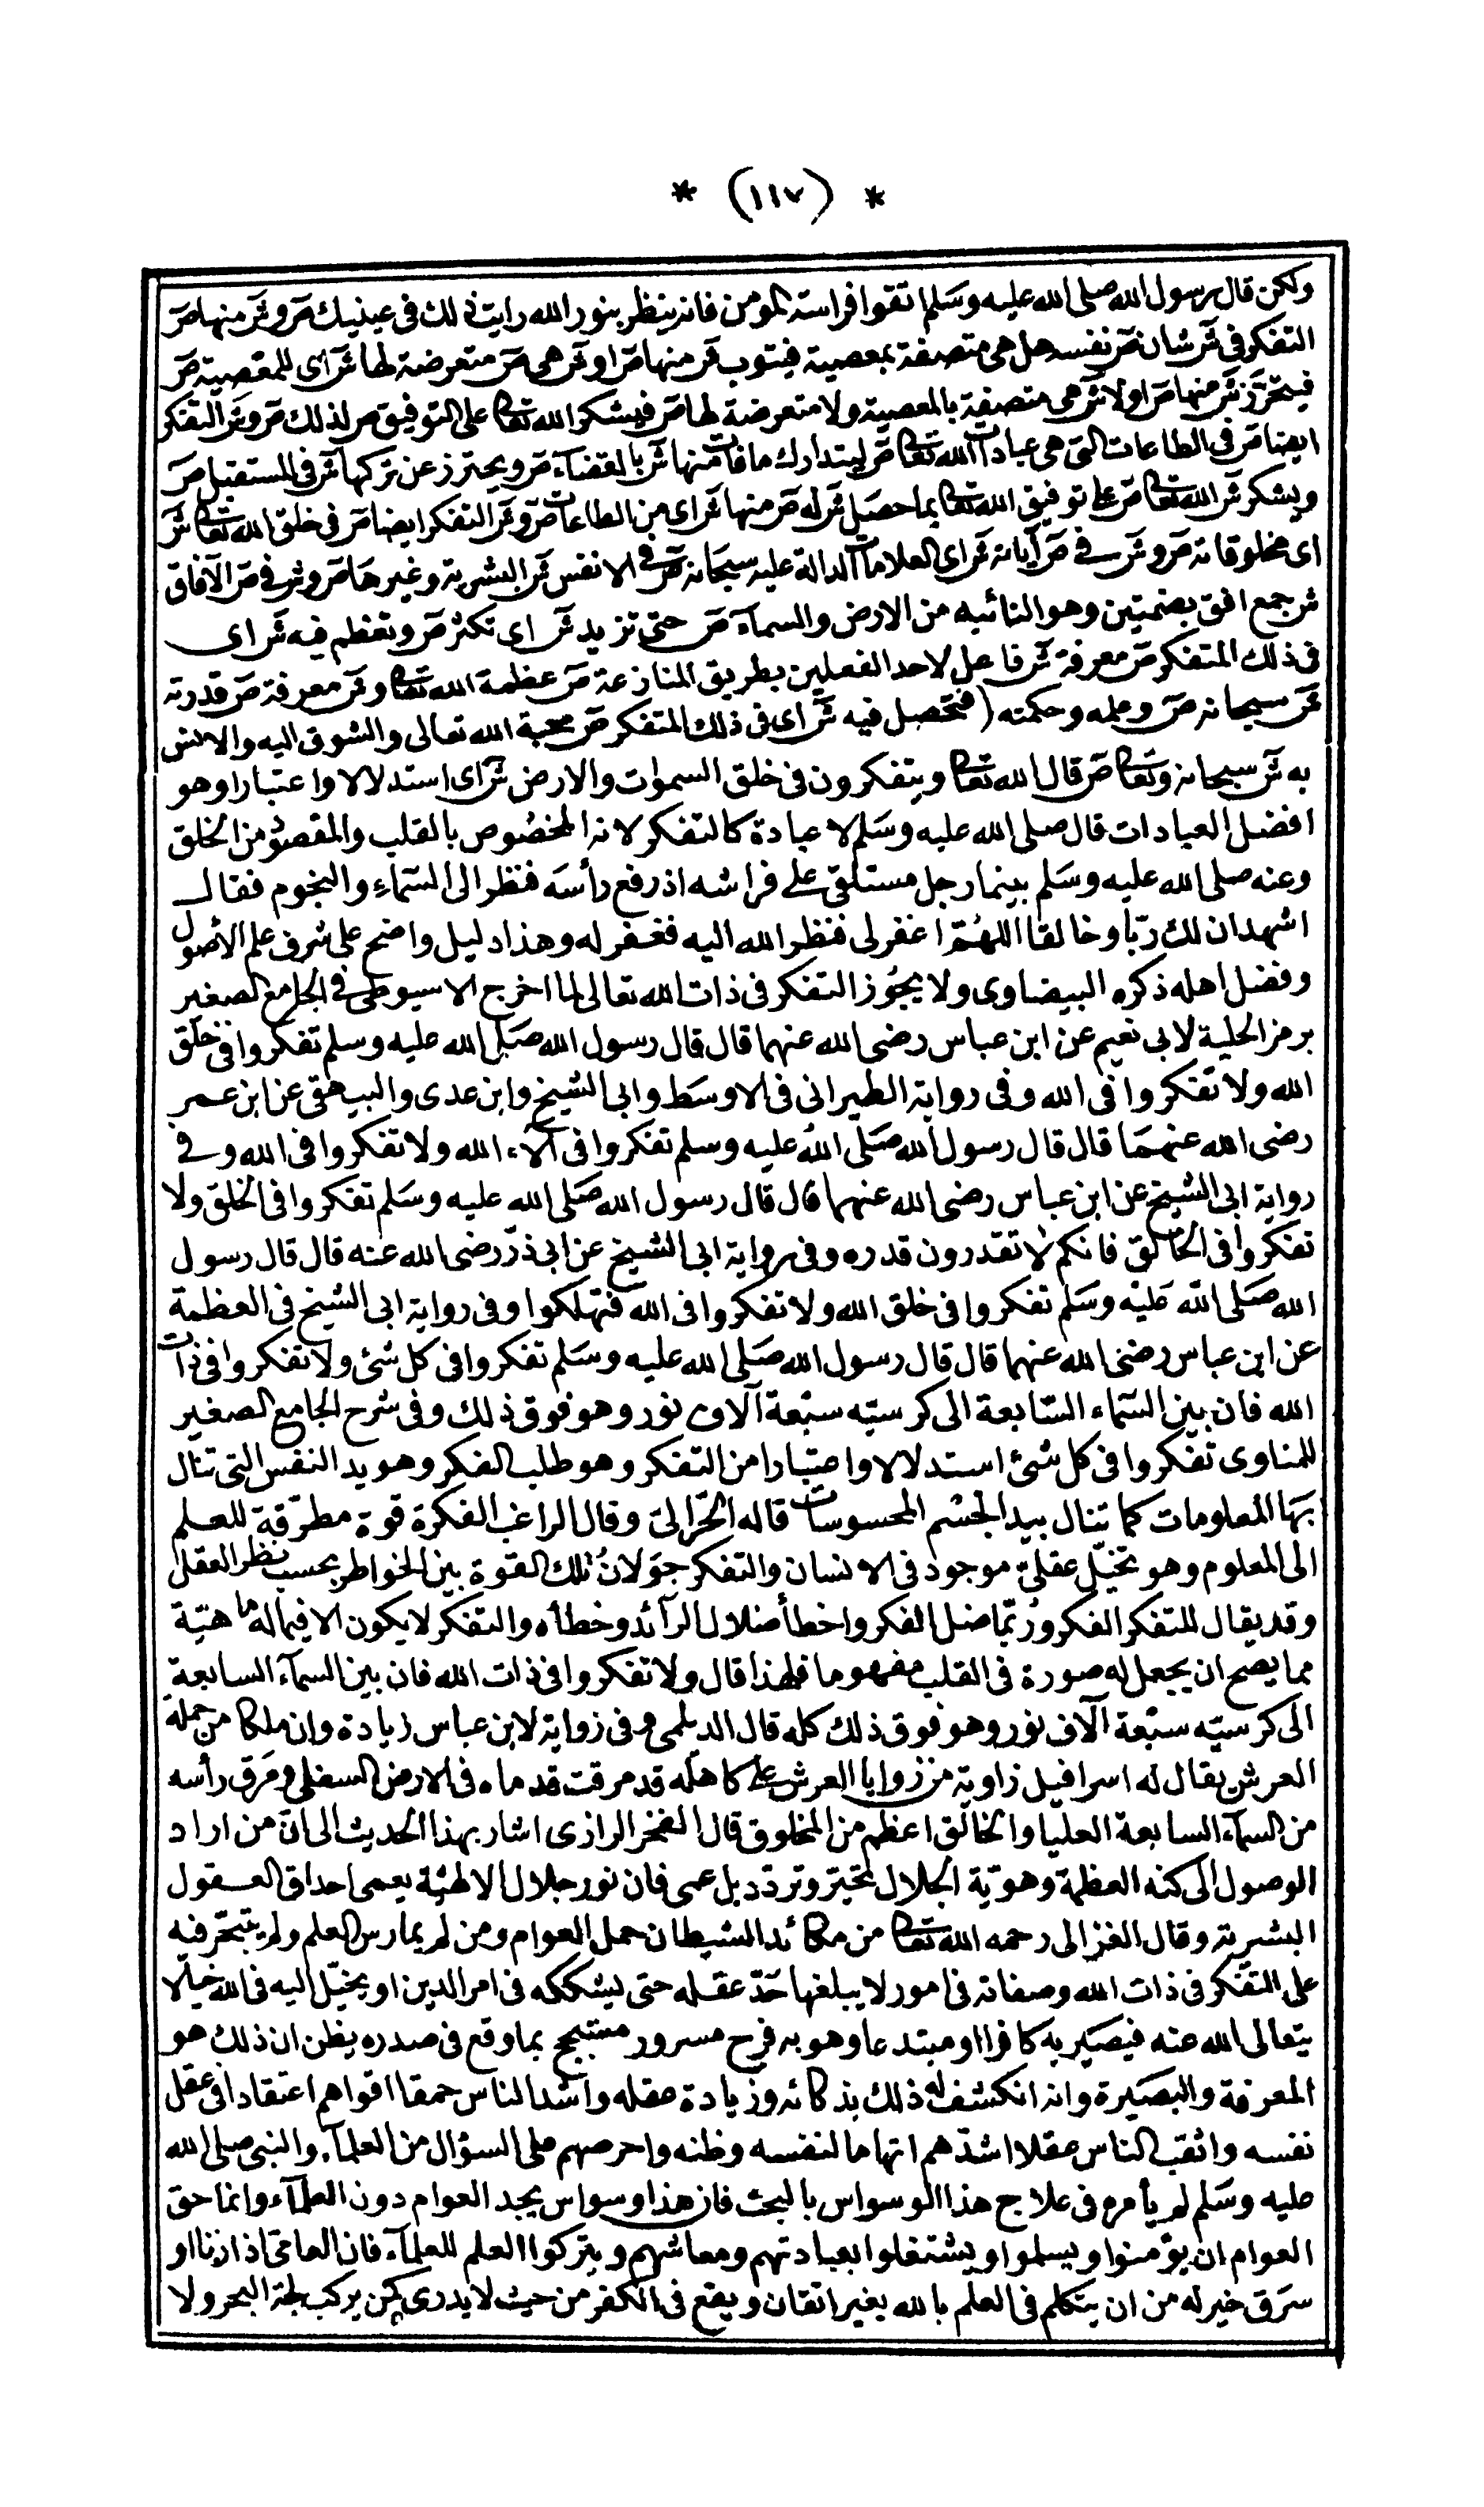 * (١١٧) *
ولكن قال رسول الله صلى الله عليه وسلم اتقوا فراسة المؤمن فانه ينظر بنور الله رايت ذلك في عينيك ص و ش منها ص
التفكر في ش شان ص نفسه هل هي متصفة بمعصية فيتوب ش منها ص او ش هي ص متعرضة لها ش اى للمعصية ص
فيتحرز ش منها ص اولا ش هي متصفة بالمعصية ولا متعرضة لها ص فيشكر الله تعالى على التوفيق ص لذلك ص و ش التفكر
ايضا ص في الطاعات التي هي عبادات الله تعالى ص ليتدارك ما فات منها ش بالقضاء ص ويحترز عن تركها ش في المستقبل ص
ويشكر ش الله تعالى ص على توفيق الله تعالى بما حصل ش له ص منها ش اى من الطاعات ص و ش التفكر ايضا ص في خلق الله تعالى ش
اى مخلوقاته ص و ش في ص آياته ش اى العلامات الدالة عليه سبحانه ص في الانفس ش البشرية وغيرها ص و ش في ص الآفاق
ش جمع افق بضمتين وهو النائية من الارض والسمآء ص حتى تزيد ش اى تكثر ص وتعظم فيه ش اى
في ذلك المتفكر ص معرفة ش فاعل لاحد الفعلين بطريق المنازعة ص عظمة الله تعالى و ش معرفة ص قدرته
ش سبحانه ص وعلمه وحكمته (فتحصل فيه ش اى في ذلك المتفكر ص محبة الله تعالى والشوق اليه والانس
به ش سبحانه وتعالى ص قال الله تعالى ويتفكرون في خلق السموات والارض ش اى استدلالا واعتبارا وهو
افضل العبادات قال صلى الله عليه وسلم لا عبادة كالتفكر لانه المخصوص بالقلب والمقصود من الخلق
وعنه صلى الله عليه وسلم بينما رجل مستلقى على فراشه اذ رفع رأسه فنظر الى السماء والنجوم فقال
اشهد ان لك ربّا وخالقا اللهم اغفر لى فنظر الله اليه فغفر له وهذا دليل واضح على شرف علم الأصول
وفضل اهله ذكره البيضاوى ولا يجوز التفكر في ذات الله تعالى لما اخرج الاسيوطى في الجامع الصغير
برمز الحلية لابى نعيم عن ابن عباس رضى الله عنهما قال قال رسول الله صلى الله عليه وسلم تفكروا في خلق
الله ولا تفكروا في الله وفى رواية الطبرانى في الاوسط وابى الشيخ وابن عدى والبيهقى عن ابن عمر
رضى الله عنهما قال قال رسول الله صلى الله عليه وسلم تفكروا في آلاء الله ولا تفكروا في الله وفى
رواية ابى الشيخ عن ابن عباس رضى الله عنهما قال قال رسول الله صلى الله عليه وسلم تفكروا في الخلق ولا
تفكروا في الخالق فانكم لا تقدرون قدره وفى رواية ابى الشيخ عن ابى ذر رضى الله عنه قال قال رسول
الله صلى الله عليه وسلم تفكروا في خلق الله ولا تفكروا في الله فتهلكوا وفى رواية ابى الشيخ في العظمة
عن ابن عباس رضى الله عنهما قال قال رسول الله صلى الله عليه وسلم تفكروا في كل شئ ولا تفكروا في ذات
الله فان بين السماء السابعة الى كرسيه سبعة آلاف نور وهو فوق ذلك وفى شرح الجامع الصغير
للمناوى تفكروا في كل شئ استدلالا واعتبارا من التفكر وهو طلب الفكر وهو يد النفس التى تنال
بها المعلومات كما تنال بيد الجسم المحسوسات قاله الحرّالىّ وقال الراغب الفكرة قوة مطرّقة للعلم
الى المعلوم وهو تخيّل عقلىّ موجود في الانسان والتفكر جولان تلك القوة بين الخواطر بحسب نظر العقل
وقد يقال للتفكر الفكر وربّما ضل الفكر واخطأ ضلال الرآئد وخطأه والتفكر لا يكون الا فيما له ماهيّة
مما يصح ان يجعل له صورة في القلب مفهوما فلهذا قال ولا تفكروا في ذات الله فان بين السمآء السابعة
الى كرسيّه سبعة آلاف نور وهو فوق ذلك كله قال الديلمى وفى رواية لابن عباس زيادة وان ملكا من حملة
العرش يقال له اسرافيل زاوية من زوايا العرش على كاهله قد مرقت قدماه في الارض السفلى ومرق رأسه
من السمآء السابعة العليا والخالق اعظم من المخلوق قال الفخر الرازى اشار بهذا الحديث الى ان من اراد
الوصول الى كنه العظمة وهويّة الجلال تحيّر وتردّد بل عمى فان نور جلال الالهيّة يعمى احداق العقول
البشرية وقال الغزالى رحمه الله تعالى من مكائد الشيطان حمل العوام ومن لم يمارس العلم ولم يتبحّر فيه
على التفكر في ذات الله وصفاته في امور لا يبلغها حدّ عقله حتى يشككه في امر الدين او يخيّل اليه في الله خيالا
يتعالى الله عنه فيصير به كافرا او مبتدعا وهو به فرح مسرور مبتهج بما وقع في صدره يظن ان ذلك هو
المعرفة والبصيرة وانه انكشف له ذلك بذكائه وزيادة عقله واشد الناس حمقا اقواهم اعتقادا في عقل
نفسه واثقب الناس عقلا اشدّهم اتهاما لنفسه وظنه واحرصهم على السؤال من العلمآء والنبى صلى الله
عليه وسلم لم يأمر في علاج هذا الوسواس بالبحث فان هذا وسواس يجد العوام دون العلمآء وانما حق
العوام ان يؤمنوا ويسلموا ويشتغلوا بعبادتهم ومعاشهم ويتركوا العلم للعلمآء فان العامىّ اذا زنا او
سرق خير له من ان يتكلم في العلم بالله بغير اتقان ويقع في الكفر من حيث لا يدرى كمن يركب لجة البحر ولا